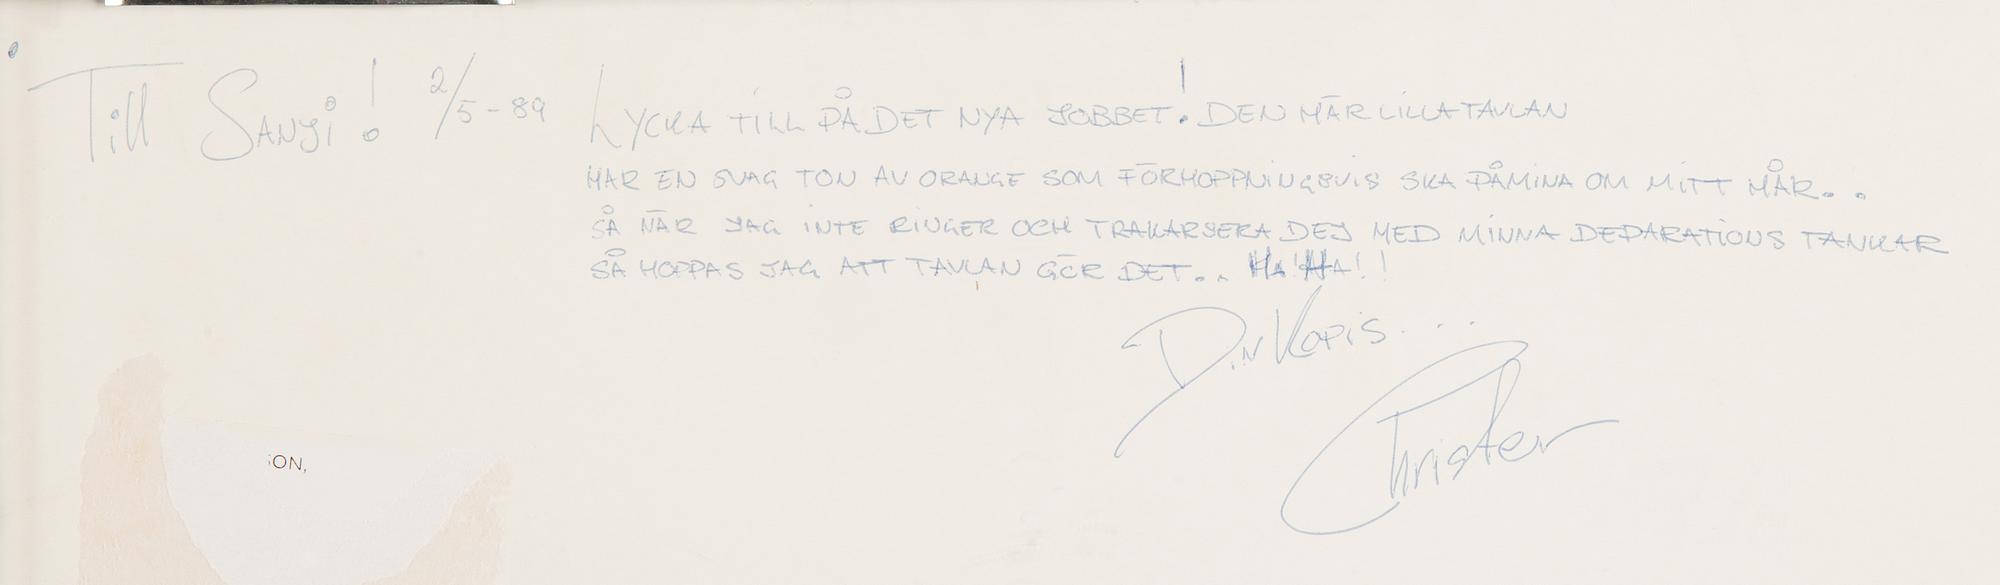 Till Sanji! 2/5-89
LYCKA TILL PÅ DET NYA JOBBET! DEN HÄR LILLA TAVLAN
HAR EN SVAG TON AV ORANGE SOM FÖRHOPPNINGSVIS SKA PÅMINA OM MITT HÅR..
SÅ NÄR JAG INTE RINGER OCH TRAKARSERA DEJ MED MINNA DEPARATIONS TANKAR
SÅ HOPPAS JAG ATT TAVLAN GÖR DET.. HA!HA!!
Din Kopis....
Christer
ION,